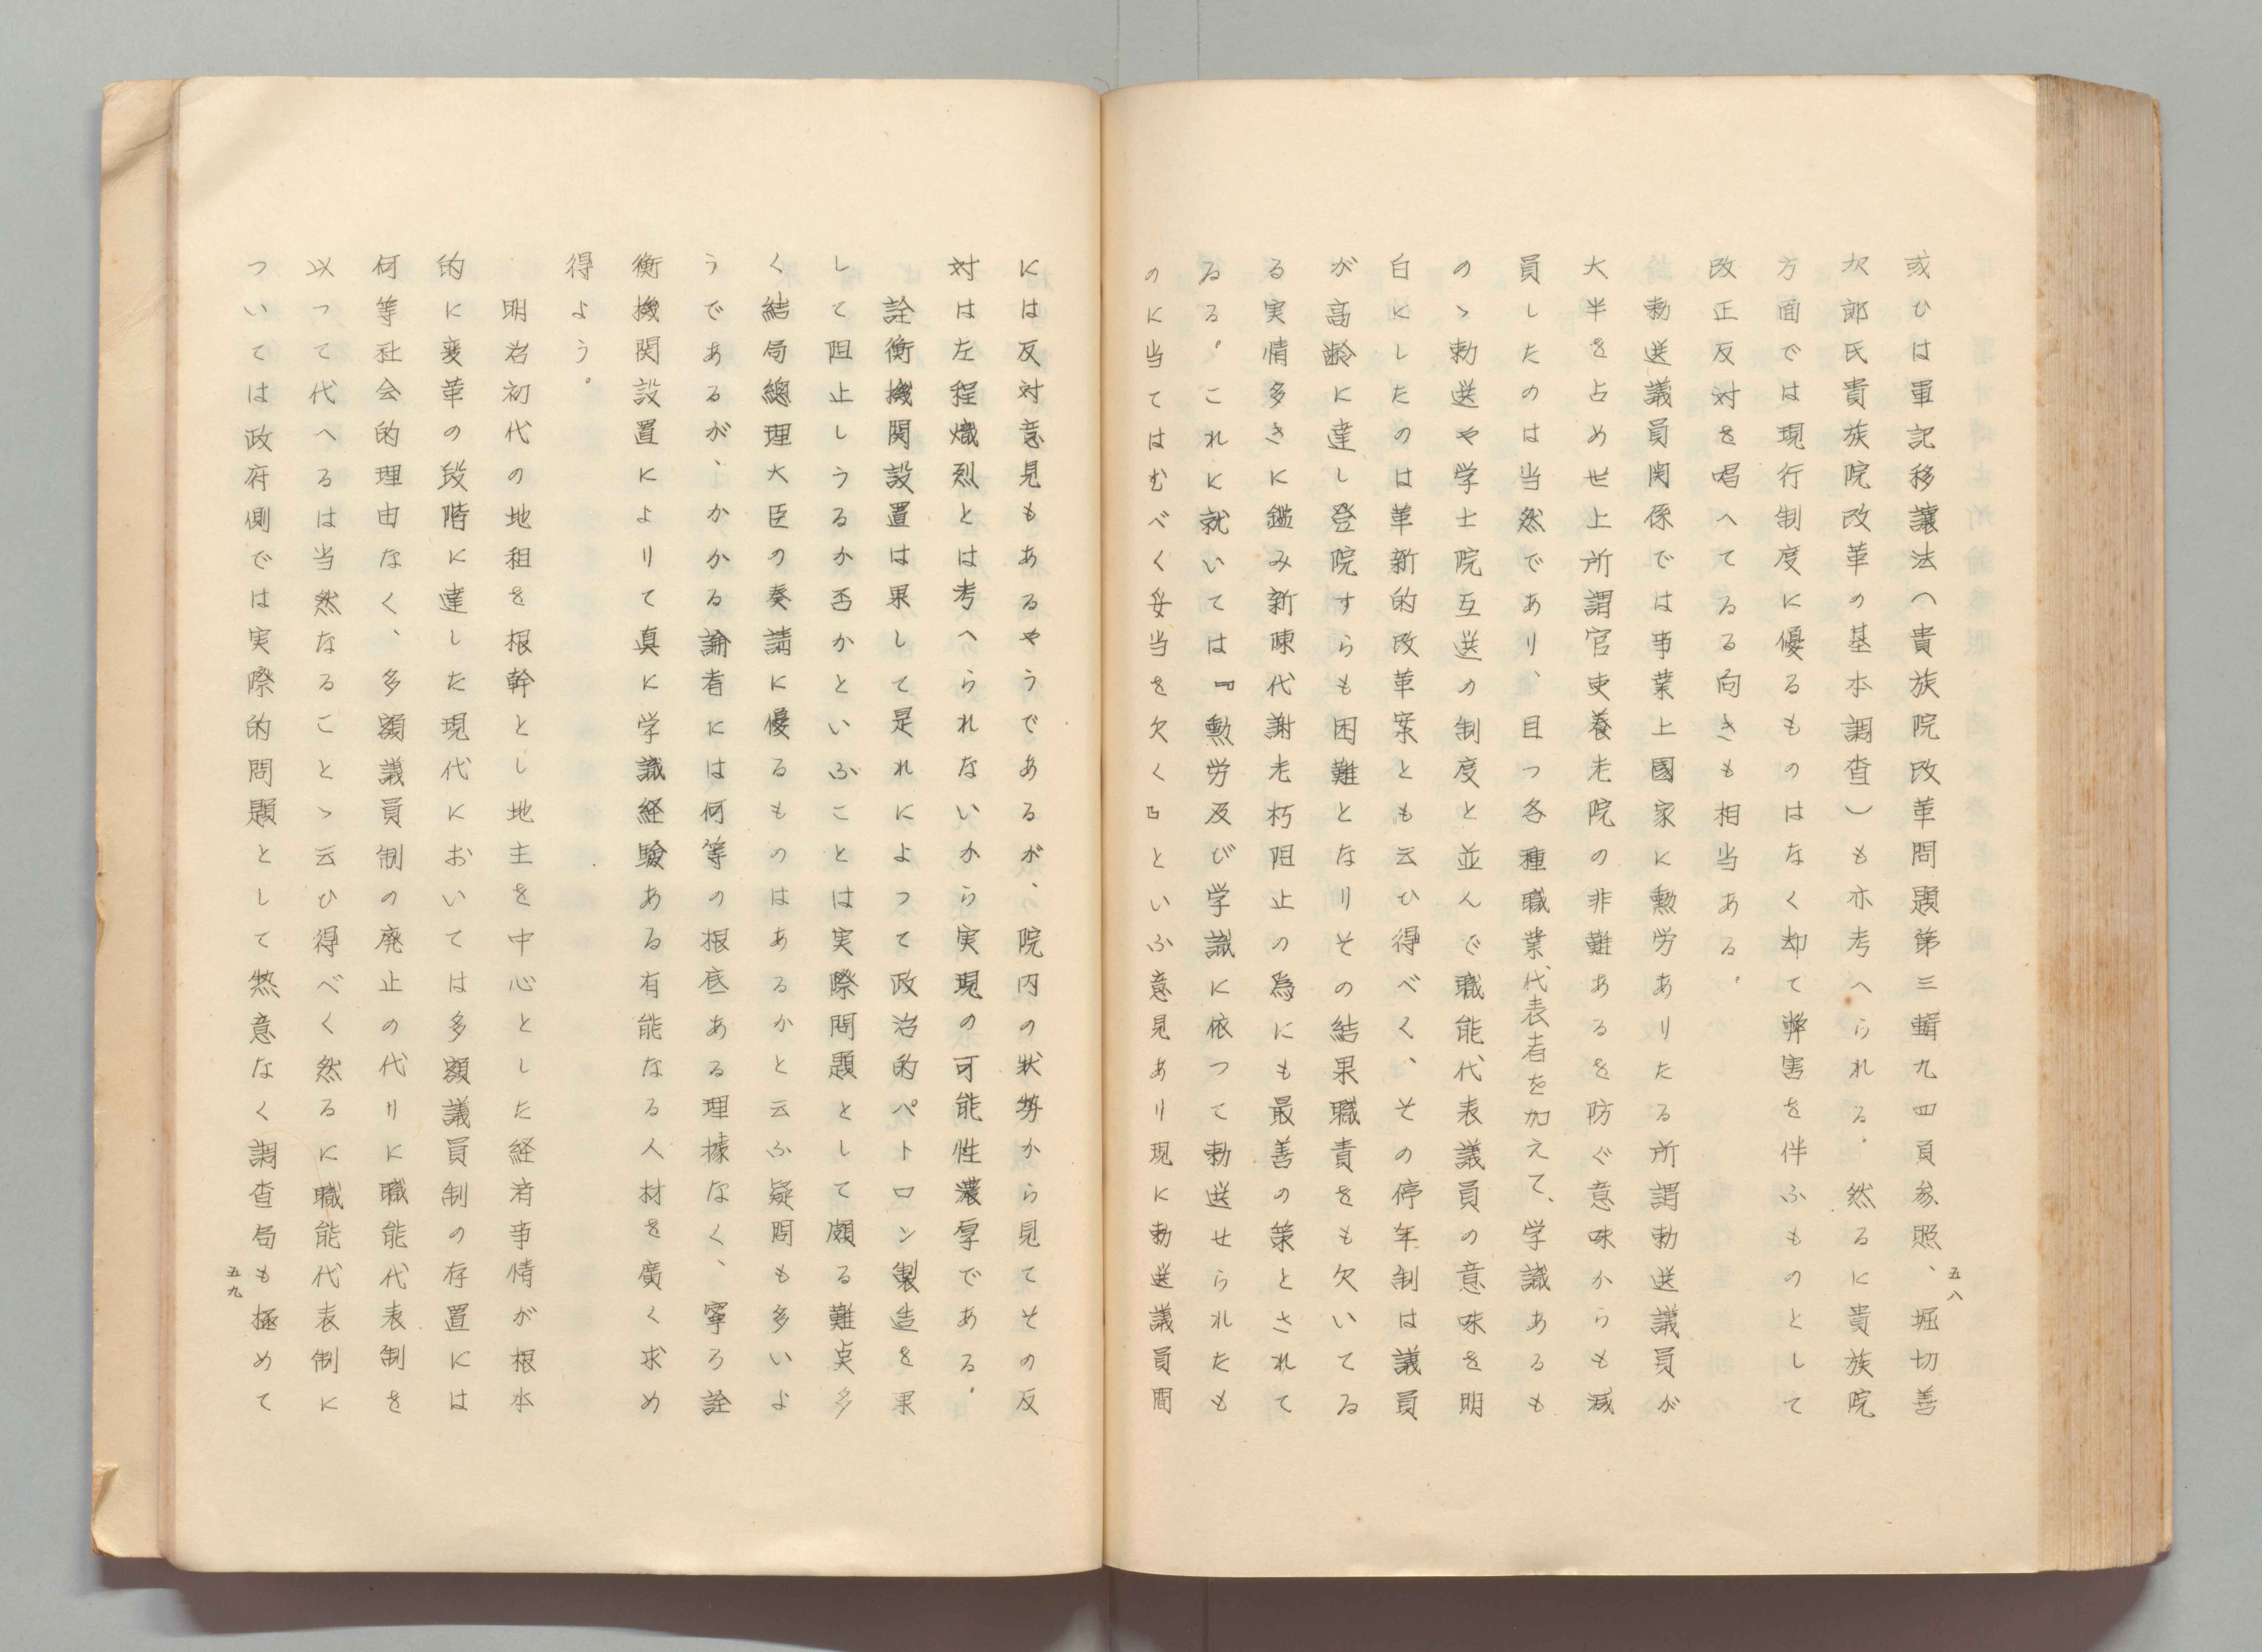 五八
或ひは軍記移讓法(貴族院改革問題第三輯九四頁参照、堀切善
次郎氏貴族院改革の基本調査)も亦考へられる。然るに貴族院
方面では現行制度に優るものはなく却て弊害を伴ふものとして
改正反対を唱へてゐる向きも相当ある。
勅送議員関係では事業上國家に勲労ありたる所謂勅送議員が
大半を占め世上所謂官吏養老院の非難あるを防ぐ意味からも減
員したのは当然であり、且つ各種職業代表者を加えて、学識あるも
のゝ勅送や学士院互送の制度と並んで職能代表議員の意味を明
白にしたのは革新的改革案とも云ひ得べく、その停年制は議員
が高齢に達し登院すらも困難となりその結果職責をも欠いてゐ
る実情多きに鑑み新陳代謝老朽阻止の為にも最善の策とされて
ゐる。これに就いては『勲労及び学識に依つて勅送せられたも
のに当てはむべく妥当を欠く』といふ意見あり現に勅送議員間
には反対意見もあるやうであるが、院内の状勢から見てその反
対は左程熾烈とは考へられないから実現の可能性濃厚である。
詮衡機関設置は果して是れによつて政治的パトロン製造を果
して阻止しうるか否かといふことは実際問題として頗る難点多
く結局總理大臣の奏請に優るものはあるかと云ふ疑問も多いよ
うであるが、かかる論者には何等の根底ある理據なく、寧ろ詮
衡機関設置によりて真に学識経験ある有能なる人材を廣く求め
得よう。
明治初代の地租を根幹とし地主を中心とした経済事情が根本
的に変革の段階に達した現代においては多額議員制の存置には
何等社会的理由なく、多額議員制の廃止の代りに職能代表制を
以つて代へるは当然なることゝ云ひ得べく然るに職能代表制に
ついては政府側では実際的問題として熱意なく調査局も極めて
五九